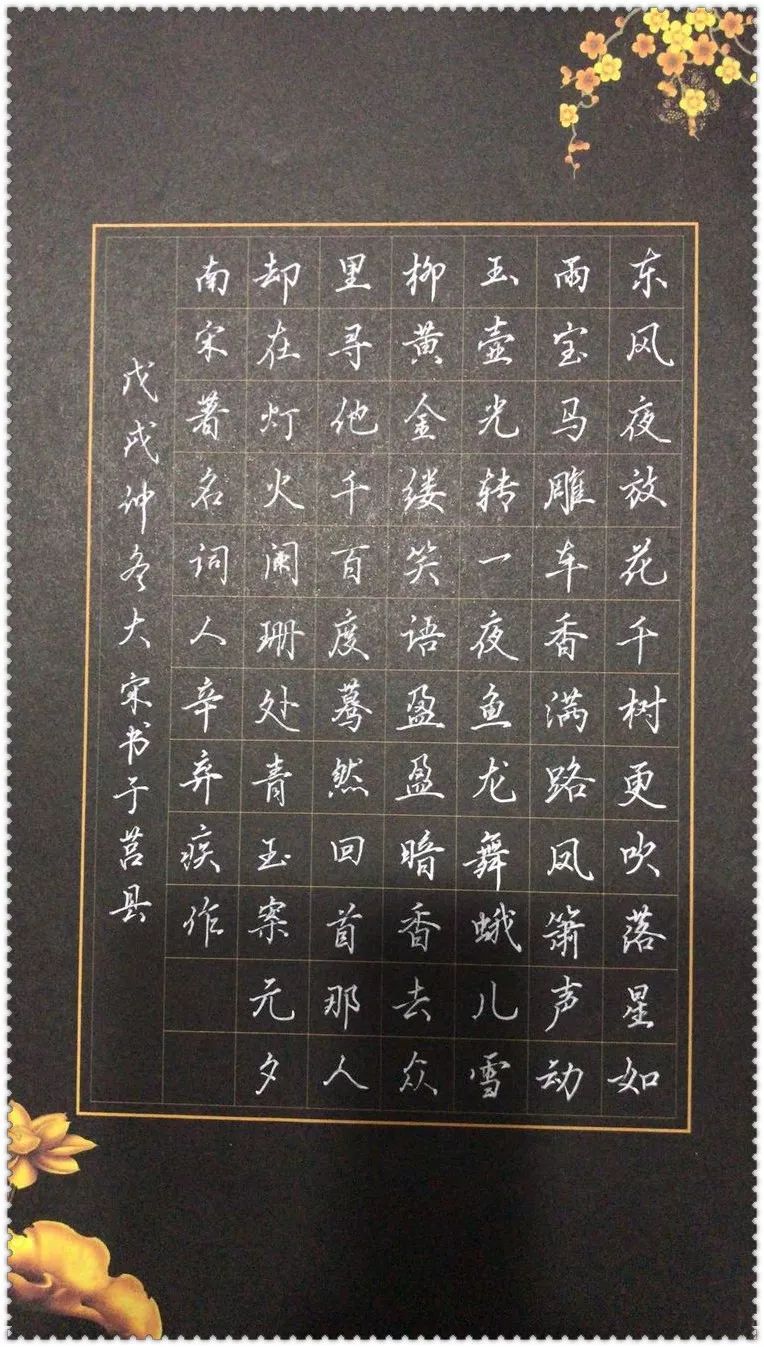 东风夜放花千树更吹落星如
雨宝马雕车香满路凤箫声动
玉壶光转一夜鱼龙舞蛾儿雪
柳黄金缕笑语盈盈暗香去众
里寻他千百度蓦然回首那人
却在灯火阑珊处青玉案元夕
南宋著名词人辛弃疾作
戊戌仲冬大宋书于莒县